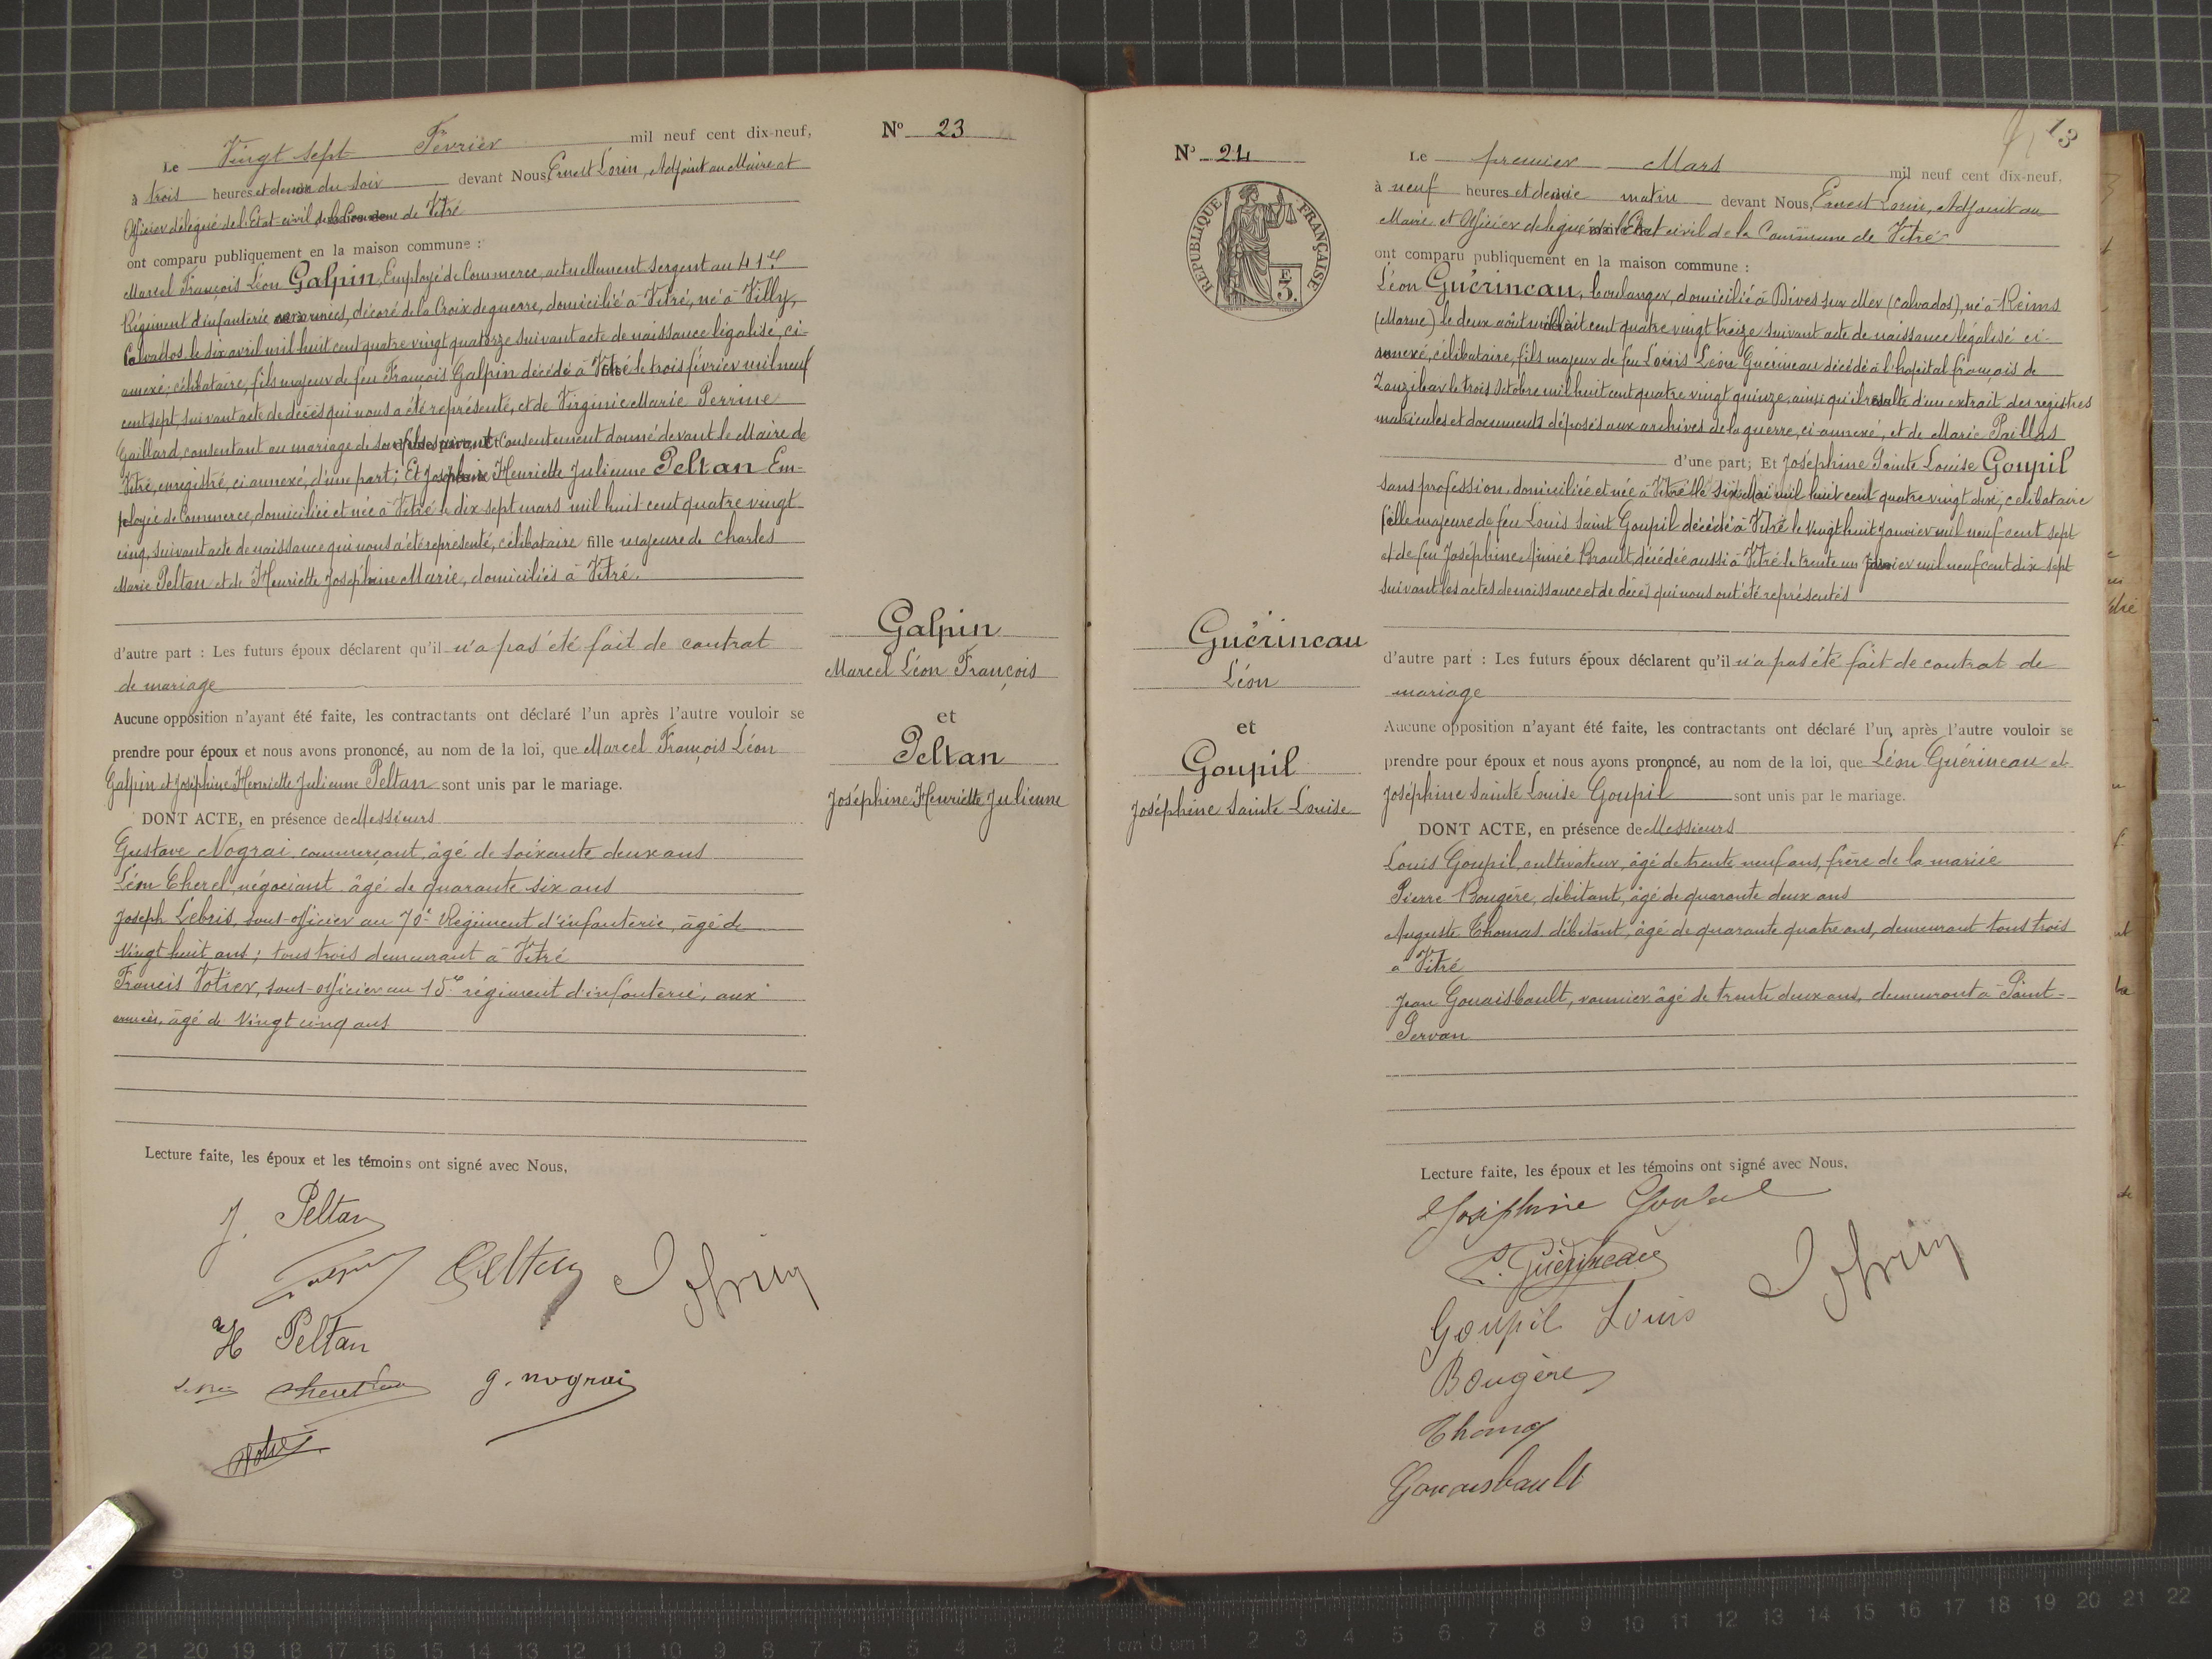 Le Vingt sept Février mil neuf cent dix-neuf,
à trois heures et demie du soir devant Nous, Ernest Lorin, Adjoint au Maire et
Officier délégué de l'Etat civil de la Commune de Vitré
ont comparu publiquement en la maison commune :
Marcel François Léon Galpin, Employé de Commerce, actuellement Sergent au 41e
Régiment d'infanterie aux armées, décoré de la Croix de guerre, domicilié à Vitré, né à Villy,
Calvados le six avril mil huit cent quatre vingt quatorze suivant acte de naissance légalisé, ci-
annexé; célibataire, fils majeur de feu François Galpin décédé à Vitré le trois février mil neuf
cent sept, suivant acte de décès qui nous a été représenté, et de Virginie Marie Perrine
Gaillard, consentant au mariage de son fils suivant consentement donné devant le Maire de
Vitré, enregistré, ci annexé, d'une part; Et Joséphine Henriette Julienne Peltan Em-
ployée de Commerce, domiciliée et née à Vitré le dix sept mars mil huit cent quatre vingt
cinq, suivant acte de naissance qui nous a été représenté, célibataire fille majeure de Charles
Marie Peltan et de Henriette Joséphine Marie, domiciliés à Vitré.
d'autre part : Les futurs époux déclarent qu'il n'a pas été fait de contrat
de mariage
Aucune opposition n'ayant été faite, les contractants ont déclaré l'un après l'autre vouloir se
prendre pour époux et nous avons prononcé, au nom de la loi, que Marcel François Léon
Galpin et Joséphine Henriette Julienne Peltan sont unis par le mariage.
DONT ACTE, en présence de Messieurs
Gustave Nograi, commerçant, âgé de soixante deux ans
Léon Cherel, négociant âgé de quarante six ans
Joseph Lebris, sous-officier au 70e Régiment d'infanterie, âgé de
Vingt huit ans; tous trois demeurant à Vitré
Francis Votier, sous-officier au 15e régiment d'infanterie, aux
armées, âgé de Vingt cinq ans
Lecture faite, les époux et les témoins ont signé avec Nous,
J. Peltan
Galpin Peltan Lorin
H Peltan
Lebris Cherel Léon g. nograi
Votier
No 23
Galpin
Marcel Léon François
et
Peltan
Joséphine Henriette Julienne
No 24
REPUBLIQUE FRANÇAISE
E
3.
Guérineau
Léon
et
Goupil
Joséphine Sainte Louise
13
Le premier Mars mil neuf cent dix-neuf.
à neuf heures et demie matin devant Nous, Ernest Lorin, Adjoint au
Maire et Officier délégué de l'Etat civil de la Commune de Vitré
ont comparu publiquement en la maison commune :
Léon Guérineau, boulanger, domicilié à Dives sur Mer (Calvados), né à Reims
(Marne) le deux août mil huit cent quatre vingt treize suivant acte de naissance légalisé ci-
annexé, célibataire, fils majeur de feu Louis Léon Guérineau décédé à l'hopital français de
Zanzibar le trois Octobre mil huit cent quatre vingt quinze, ainsi qu'il résulte d'un extrait des registres
matricules et documents déposés aux archives de la guerre, ci-annexé, et de Marie Paillas
d'une part; Et Joséphine Sainte Louise Goupil
sans profession, domiciliée et née à Vitré le six Mai mil huit cent quatre vingt dix; célibataire
fille majeure de feu Louis Saint Goupil décédé à Vitré le Vingt huit Janvier mil neuf-cent sept
et de feu Joséphine Aimée Brault, décédée aussi à Vitré le trente un Janvier mil neuf cent dix sept
suivant les actes de naissance et de décès qui nous ont été représentés
d'autre part : Les futurs époux déclarent qu'il n'a pas été fait de contrat de
mariage
Aucune opposition n'ayant été faite, les contractants ont déclaré l'un après l'autre vouloir se
prendre pour époux et nous avons prononcé, au nom de la loi, que Léon Guérineau et
Joséphine Sainte Louise Goupil sont unis par le mariage.
DONT ACTE, en présence de Messieurs
Louis Goupil, cultivateur, âgé de trente neuf ans, frère de la mariée
Pierre Bougère, débitant, âgé de quarante deux ans
Auguste Thomas débitant, âgé de quarante quatre ans, demeurant tous trois
à Vitré
Jean Gouaisbault, vannier âgé de trente deux ans, demeurant à Saint-
Servan
Lecture faite, les époux et les témoins ont signé avec Nous,
Joséphine Goupil
L. Guérineau Lorin
Goupil Louis
Bougère
Thomas
Gouaisbault
1 cm 0 cm 1